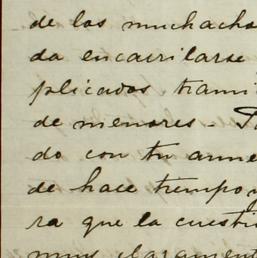 de los muchacho
da encarrilarse
plicados trami
de menores. 
do con tu arme
de hace tiempo y
ra que la cuesti
muy claramente